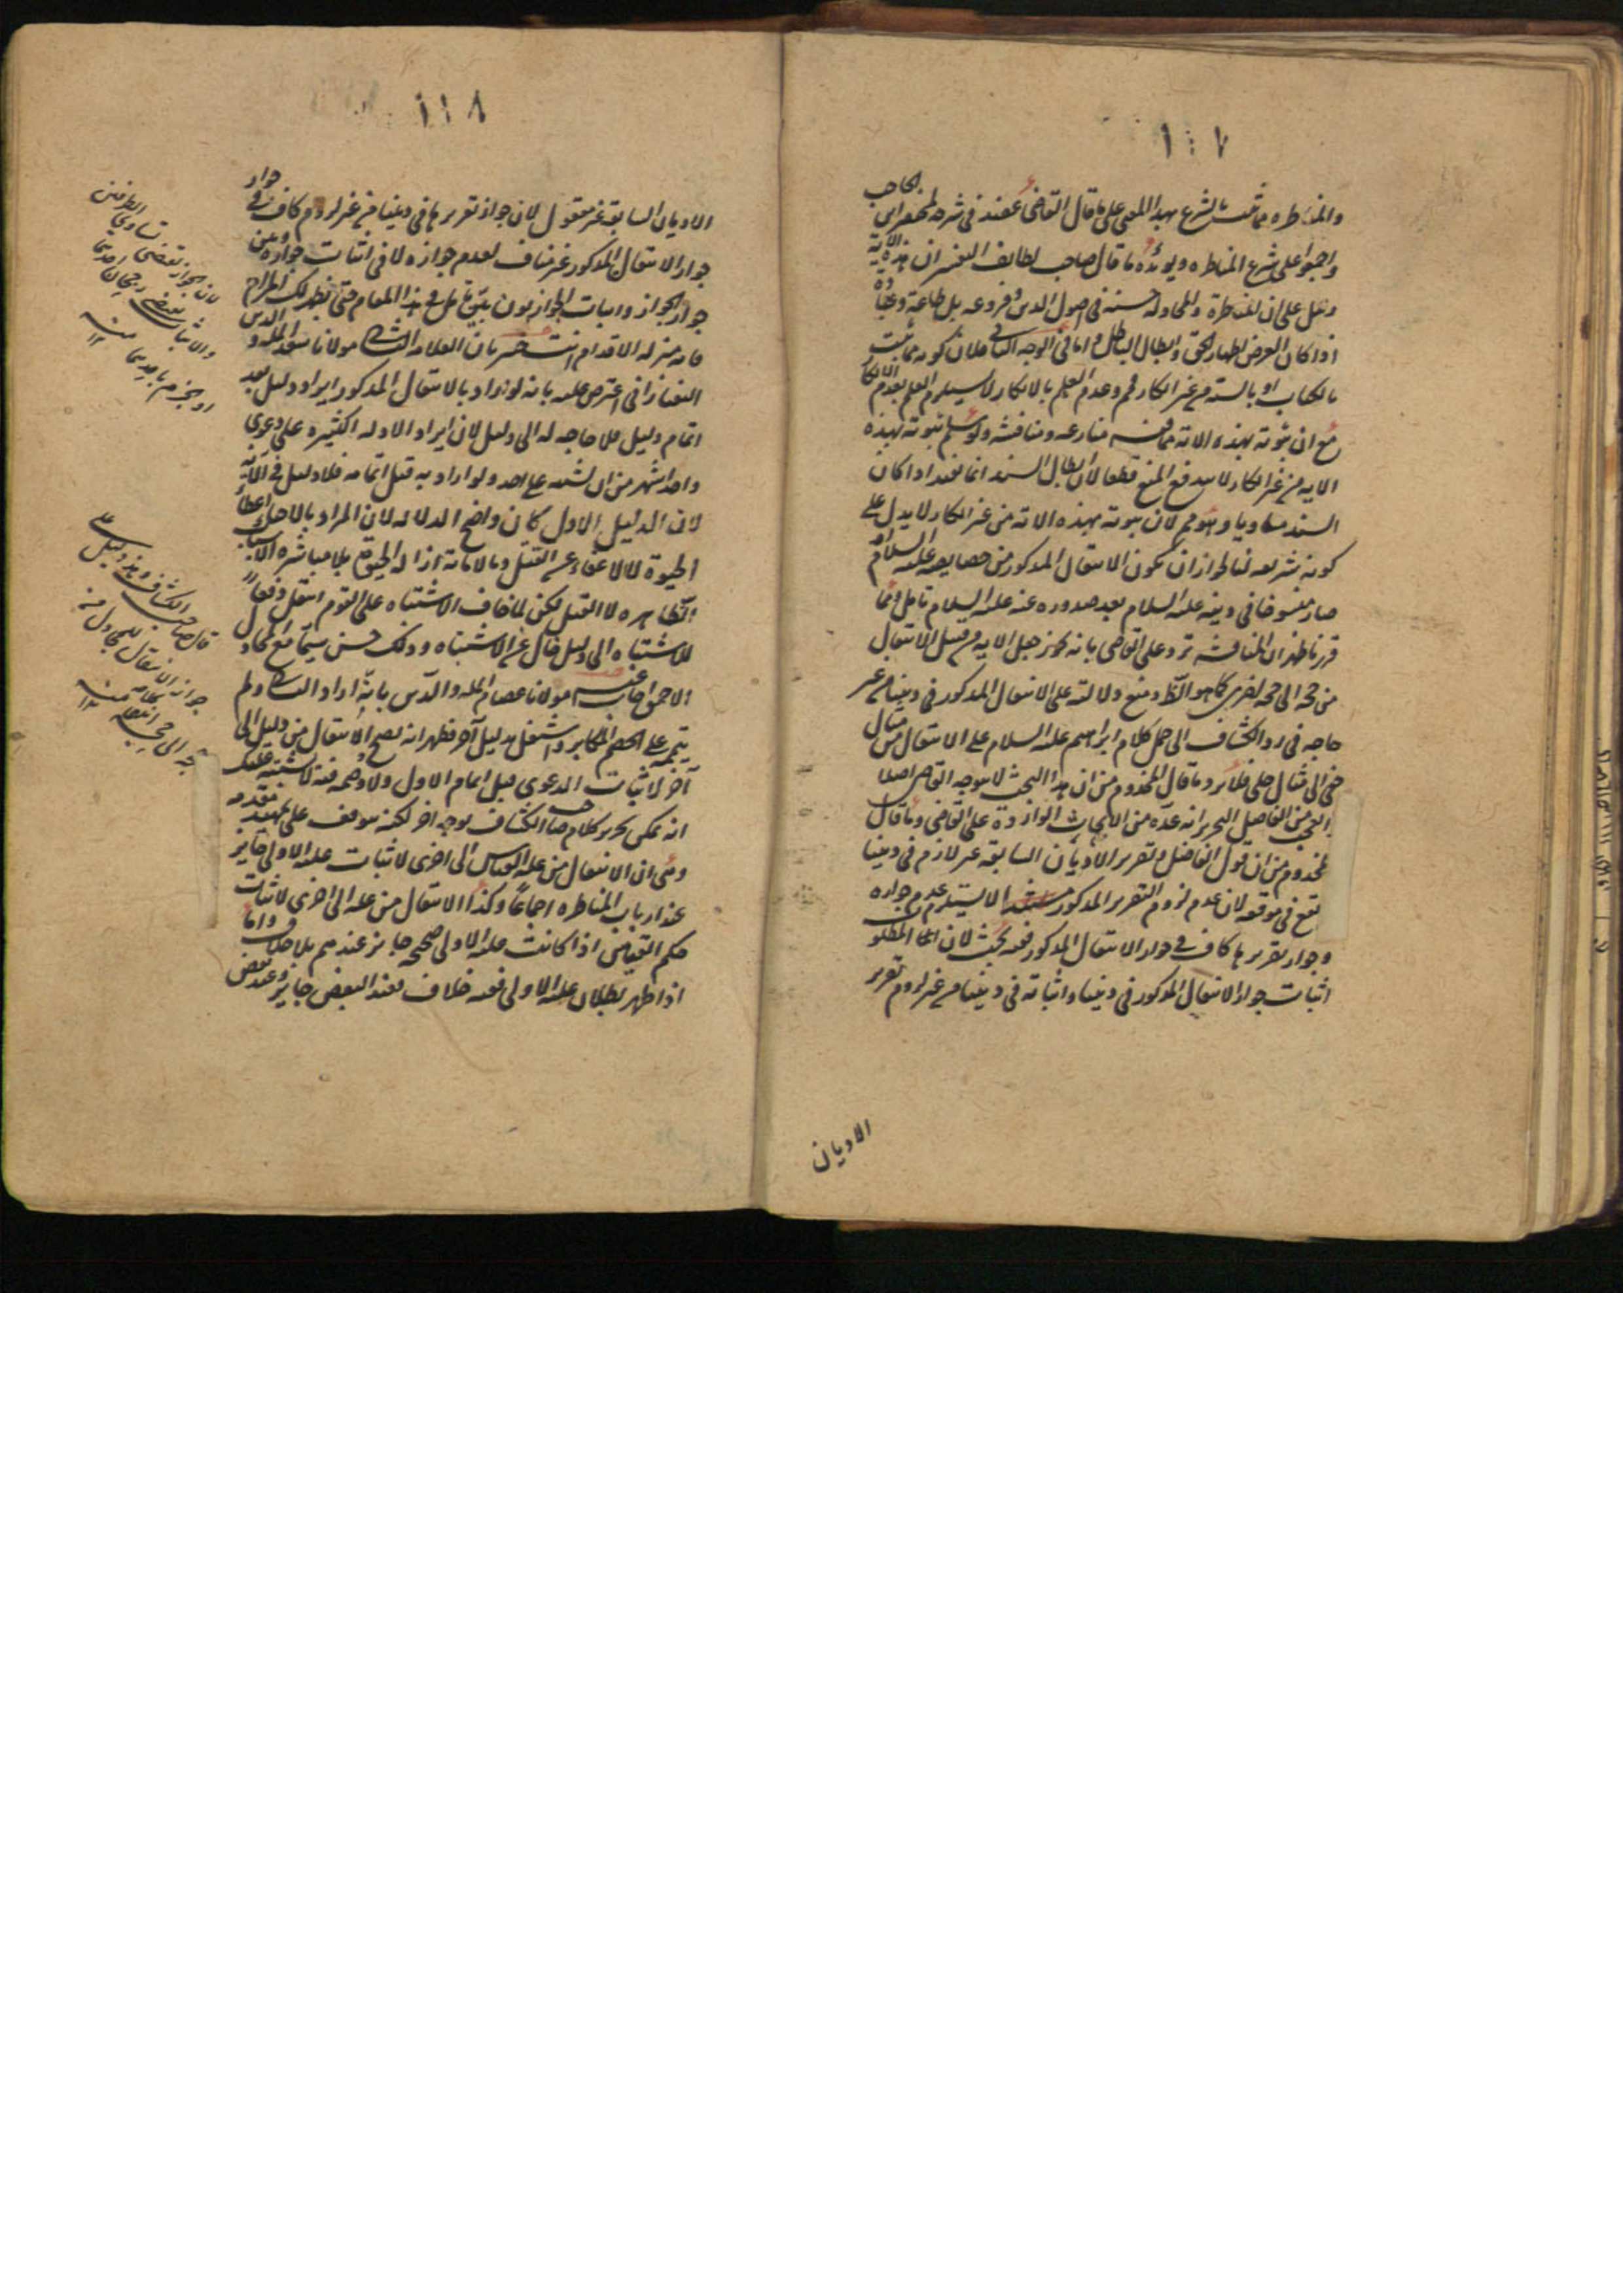 ١٠٧
والمناظرة مما ثبت بالشرع بهذا المعنى على ما قال القاضى عضد فى شرحه لمختصر ابن الحاجب
واجمعوا على شرع المناظره ويؤيده ما قال صاحب لطايف التفسير ان هذه الآية
تدل على ان المناظرة والمجادلة حسنه فى اصول الدين وفروعه بل طاعة وعبادة
اذا كان الغرض اظهار الحق وابطال الباطل واما فى الوجه الثانى فلان كونه مما ثبت
بالكتاب او بالسنة من غير انكار مم وعدم العلم بالانكار لا يستلزم العلم بعدم الانكار
مع ان ثبوته بهذه الاية مما فيه منازعه ومناقشة ولو سلم ثبوته بهذه
الايه من غير انكار لا يندفع المنع قطعا لان ابطال السند انما يفيد اذا كان
السند مساويا وهو مم لان ثبوته بهذه الاية من غير انكار لا يدل على
كونه شريعه لنا لجواز ان يكون الانتقال المذكور من خصايصه عليه السلام او
صار منسوخا فى دينه عليه السلام بعد صدوره عنه عليه السلام تامل ومما
قررنا ظهر ان المناقشه ترد على القاضى بانه يجوز جعل الايه من قبيل الانتقال
من حجه الى حجه اخرى كما هو الظ ومنع دلالته على الانتقال المذكور فى ديننا من غير
حاجه فى رد الكشاف الى حمل كلام ابراهيم عليه السلام على الانتقال من مثال
خفى الى مثال جلى فلا يرد ما قال المخدوم من ان هذا البحث لا يتوجه القاضى اصلا
العجب من الفاضل النحرير انه عده من الابحاث الواردة على القاضى وما قال
المخدوم من ان قول الفاضل وتقرير الاديان السابقه غير لازم فى ديننا
يقع فى موقعه لان عدم لزوم التقرير المذكور لا يستلزم عدم جوازه
وجواز تقريرها كاف فى جواز الانتقال المذكور ففيه بحث لان المطلوب
اثبات جواز الانتقال المذكور فى ديننا واثباته فى ديننا من غير لزوم تقرير
الاديان
١١٨
الاديان السابقة غير معقول لان جواز تقريرها فى ديننا من غير لزوم كاف فى جواز
جواز الانتقال المذكور غير مناف لعدم جوازه لا فى اثبات جوازه وبين
جواز الجواز واثبات الجواز بون بيّن تامل فى هذا المقام حتى يظهر لك المرام
فانه مزله الاقدام بان العلامه الثانى مولانا سعد الملة والدين
التفتازانى اعترض عليه بانه لو اراد بالانتقال المذكور ايراد دليل بعد
اتمام دليل فلا حاجه له الى دليل لان ايراد الادله الكثيره على دعوى
واحد اشهر من ان يشتبه على احد ولو اراد به قبل اتمامه فلا دليل فى الآية
لان الدليل الاول كان واضح الدلاله لان المراد بالاحياء اعطاء
الحيوة لا الاعفاء عن القتل وبالاماتة ازاله الحيوة بلا مباشره الاسباب
الظاهره لا القتل لكن لما خاف الاشتباه على القوم انتقل دفعا
للاشتباه الى دليل خال عن الاشتباه وذلك حسن سيما مع المجادل
الاحمق اجاب عنه مولانا عصام المله والدين بانه اراد الثانى ولم
يتمه على الخصم المكابر واشتغل بدليل آخر فظهر انه يصح الانتقال من دليل الى
آخر لاثبات الدعوى قبل اتمام الاول ولا وصمه فيه لا يشتبه عليك
انه يمكن تحرير كلام صاحب الكشاف بوجه اخر لكنه موقف على تمهيد مقدمه
وهى ان الانتقال من عله القياس الى اخرى لاثبات علته الاولى جايز
عند ارباب المناظره اجماعا وكذا الانتقال من عله الى اخرى لاثبات
حكم القياس اذا كانت علته الاولى صحيحه جايز عندهم بلا خلاف واما
اذا ظهر بطلان علته الاولى ففيه خلاف فعند البعض جايز وعند بعض
لان الجواز تقتضى تساوى الطرفين
والاثبات يقتضى رجحان احديهما
او الجزم باحديهما منه ١٢
قال صاحب الكشاف وهذا دليل على
جواز الانتقال للمجادل من
حجه الى حجه منه ١٢